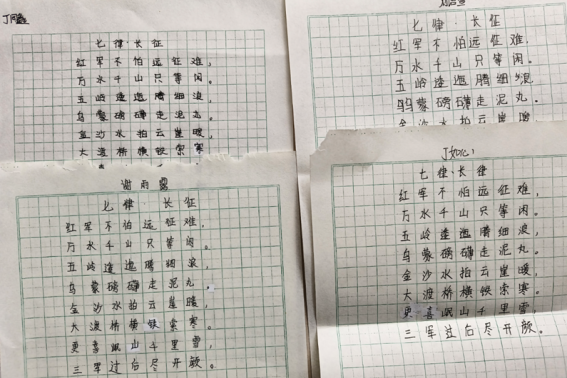 七律·长征
红军不怕远征难,
万水千山只等闲。
五岭逶迤腾细浪,
乌蒙磅礴走泥丸。
金沙水拍云崖暖,
大渡桥横铁索寒
七律·长征
红军不怕远征难,
万水千山只等闲。
五岭逶迤腾细浪
乌蒙磅礴走泥丸。
金沙水拍云崖暖,
谢雨露
七律·长征
红军不怕远征难,
万水千山只等闲。
五岭逶迤腾细浪,
乌蒙磅礴走泥丸。
金沙水拍云崖暖,
大渡桥横铁索寒。
更喜岷山千里雪,
三军过后尽开颜。
丁如心
七律·长征
红军不怕远征难,
万水千山只等闲。
五岭逶迤腾细浪,
乌蒙磅礴走泥丸。
金沙水拍云崖暖,
大渡桥横铁索寒。
更喜岷山千里雪,
三军过后尽开颜。